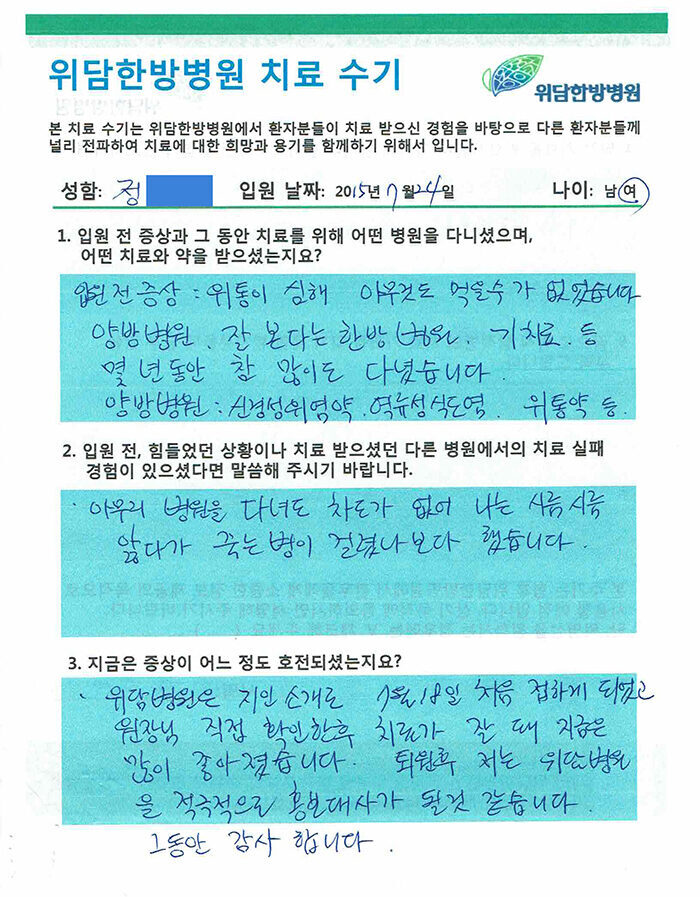 위담한방병원 치료 수기
위담한방병원
본 치료 수기는 위담한방병원에서 환자분들이 치료 받으신 경험을 바탕으로 다른 환자분들께
널리 전파하여 치료에 대한 희망과 용기를 함께하기 위해서 입니다.
성함: 정 입원 날짜: 2015년 7월 24일 나이: 남 여
1. 입원 전 증상과 그 동안 치료를 위해 어떤 병원을 다니셨으며,
어떤 치료와 약을 받으셨는지요?
입원전증상 : 위통이 심해 아무것도 먹을수가 없었습니다
양방병원. 잘 본다는 한방병원. 기치료. 등
몇 년동안 참 많이도 다녔습니다.
양방병원 : 신경성위염약. 역류성식도염. 위통약 등.
2. 입원 전, 힘들었던 상황이나 치료 받으셨던 다른 병원에서의 치료 실패
경험이 있으셨다면 말씀해 주시기 바랍니다.
· 아무리 병원을 다녀도 차도가 없어 나는 시름시름
앓다가 죽는병이 걸렸나보다 했습니다.
3. 지금은 증상이 어느 정도 호전되셨는지요?
· 위담병원은 지인소개로 7월18일 처음 접하게 되었고
원장님 직접 확인한후 치료가 잘 돼 지금은
많이 좋아졌습니다. 퇴원후 저는 위담병원
을 적극적으로 홍보대사가 될것 같습니다.
그동안 감사합니다.